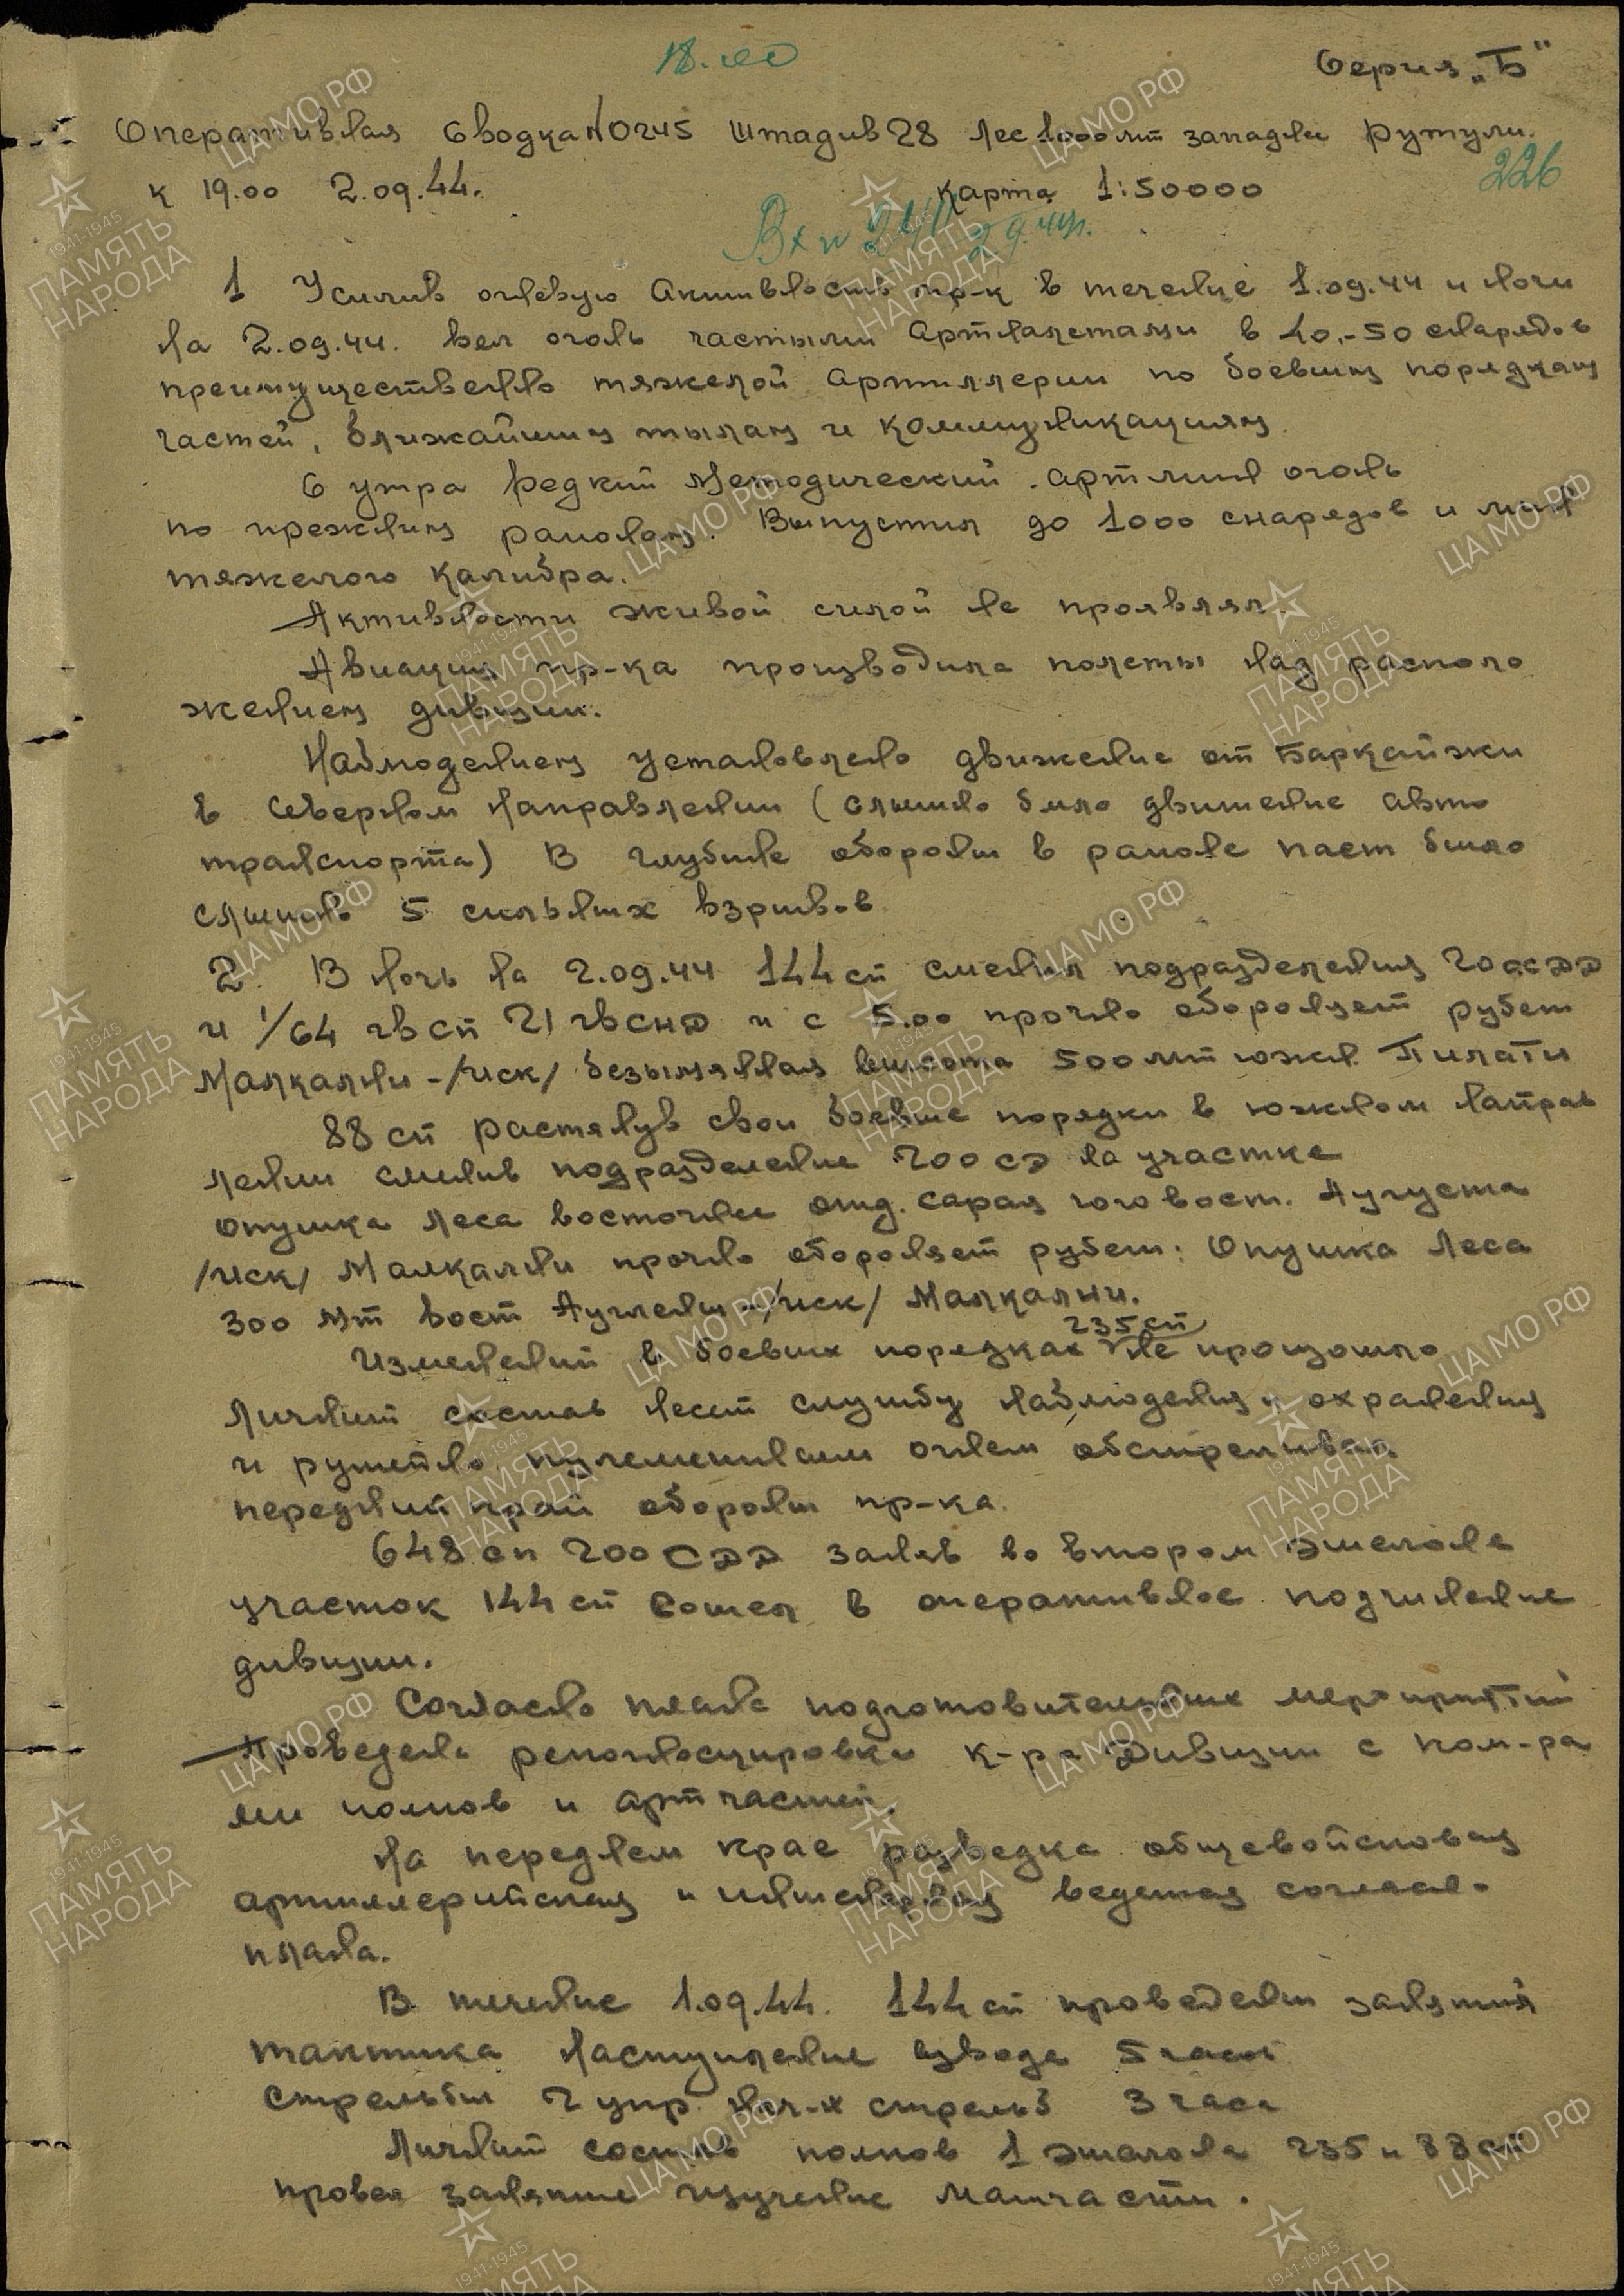 18.00
Серия „Б"
Оперативная Сводка №0245 Штадив 28 Лес 1000мт западн Рутули.
226
к 19.00 2.09.44.
Карта 1:50000
Вх №
2.9.44г.
1 Усилив огневую Активность пр-к в течение 1.09.44 и ночи
на 2.09.44. вел огонь частыми Артналетами в 40-50 снарядов
преимущественно тяжелой Артиллерии по боевым порядкам
частей, ближайшим тылам и коммуникациям.
С утра Редкий Методический артмин огонь
по прежним районам. Выпустил до 1000 снарядов и мин
тяжелого калибра.
Активности живой силой не проявлял.
Авиация пр-ка производила полеты над располо
жением дивизии.
Наблюдением установлено движение от Баркайжи
в северном направлении (слышно было движение авто
транспорта) В глубине обороны в районе паст было
слышно 5 сильных взрывов
2. В ночь на 2.09.44 144 сп сменил подразделения 200 сдд
и 1/64 гв сп 21 гвснд и с 5.00 прочно обороняет рубеж
Малкални -/иск/ безымянная высота 500мт южн Пилати
88 сп растянув свои боевые порядки в южном направ
лении сменив подразделение 200 сд на участке
опушка леса восточнее отд. сарая юговост. Аугуста
/иск/ Малкални прочно обороняет рубеж: Опушка Леса
300 мт вост Ауглены -/иск/ Малкални.
235 сп
Изменений в боевых порядках не произошло
Личный состав несет службу наблюдения и охранения
и ружейно пулеметным огнем обстреливал
передний край обороны пр-ка.
648 сп 200 СДД заняв во втором эшелоне
участок 144 сп вошел в оперативное подчинение
дивизии.
Согласно плана подготовительных мероприятий
Проведена рекогносцировка к-ра Дивизии с ком-ра
ми полков и артчастей.
На переднем крае разведка общевойсковая
артиллерийская и инженерная ведется согласно
плана.
В течение 1.09.44. 144 сп проведены занятия
тактика Наступление взвода 5 часов
стрельбы 2 упр. нач-х стрельб 3 часа
Личный состав полков 1 эшелона 235 и 88 сп
провел занятие изучение матчасти.
ЦА МО РФ
1941-1945
ПАМЯТЬ
НАРОДА